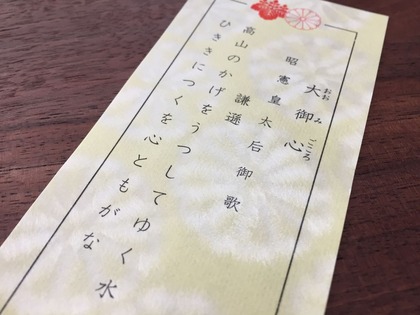 大御心
おおみごころ
昭憲皇太后御歌
謙遜
高山のかげをうつしてゆく水の
ひききにつくを心ともがな